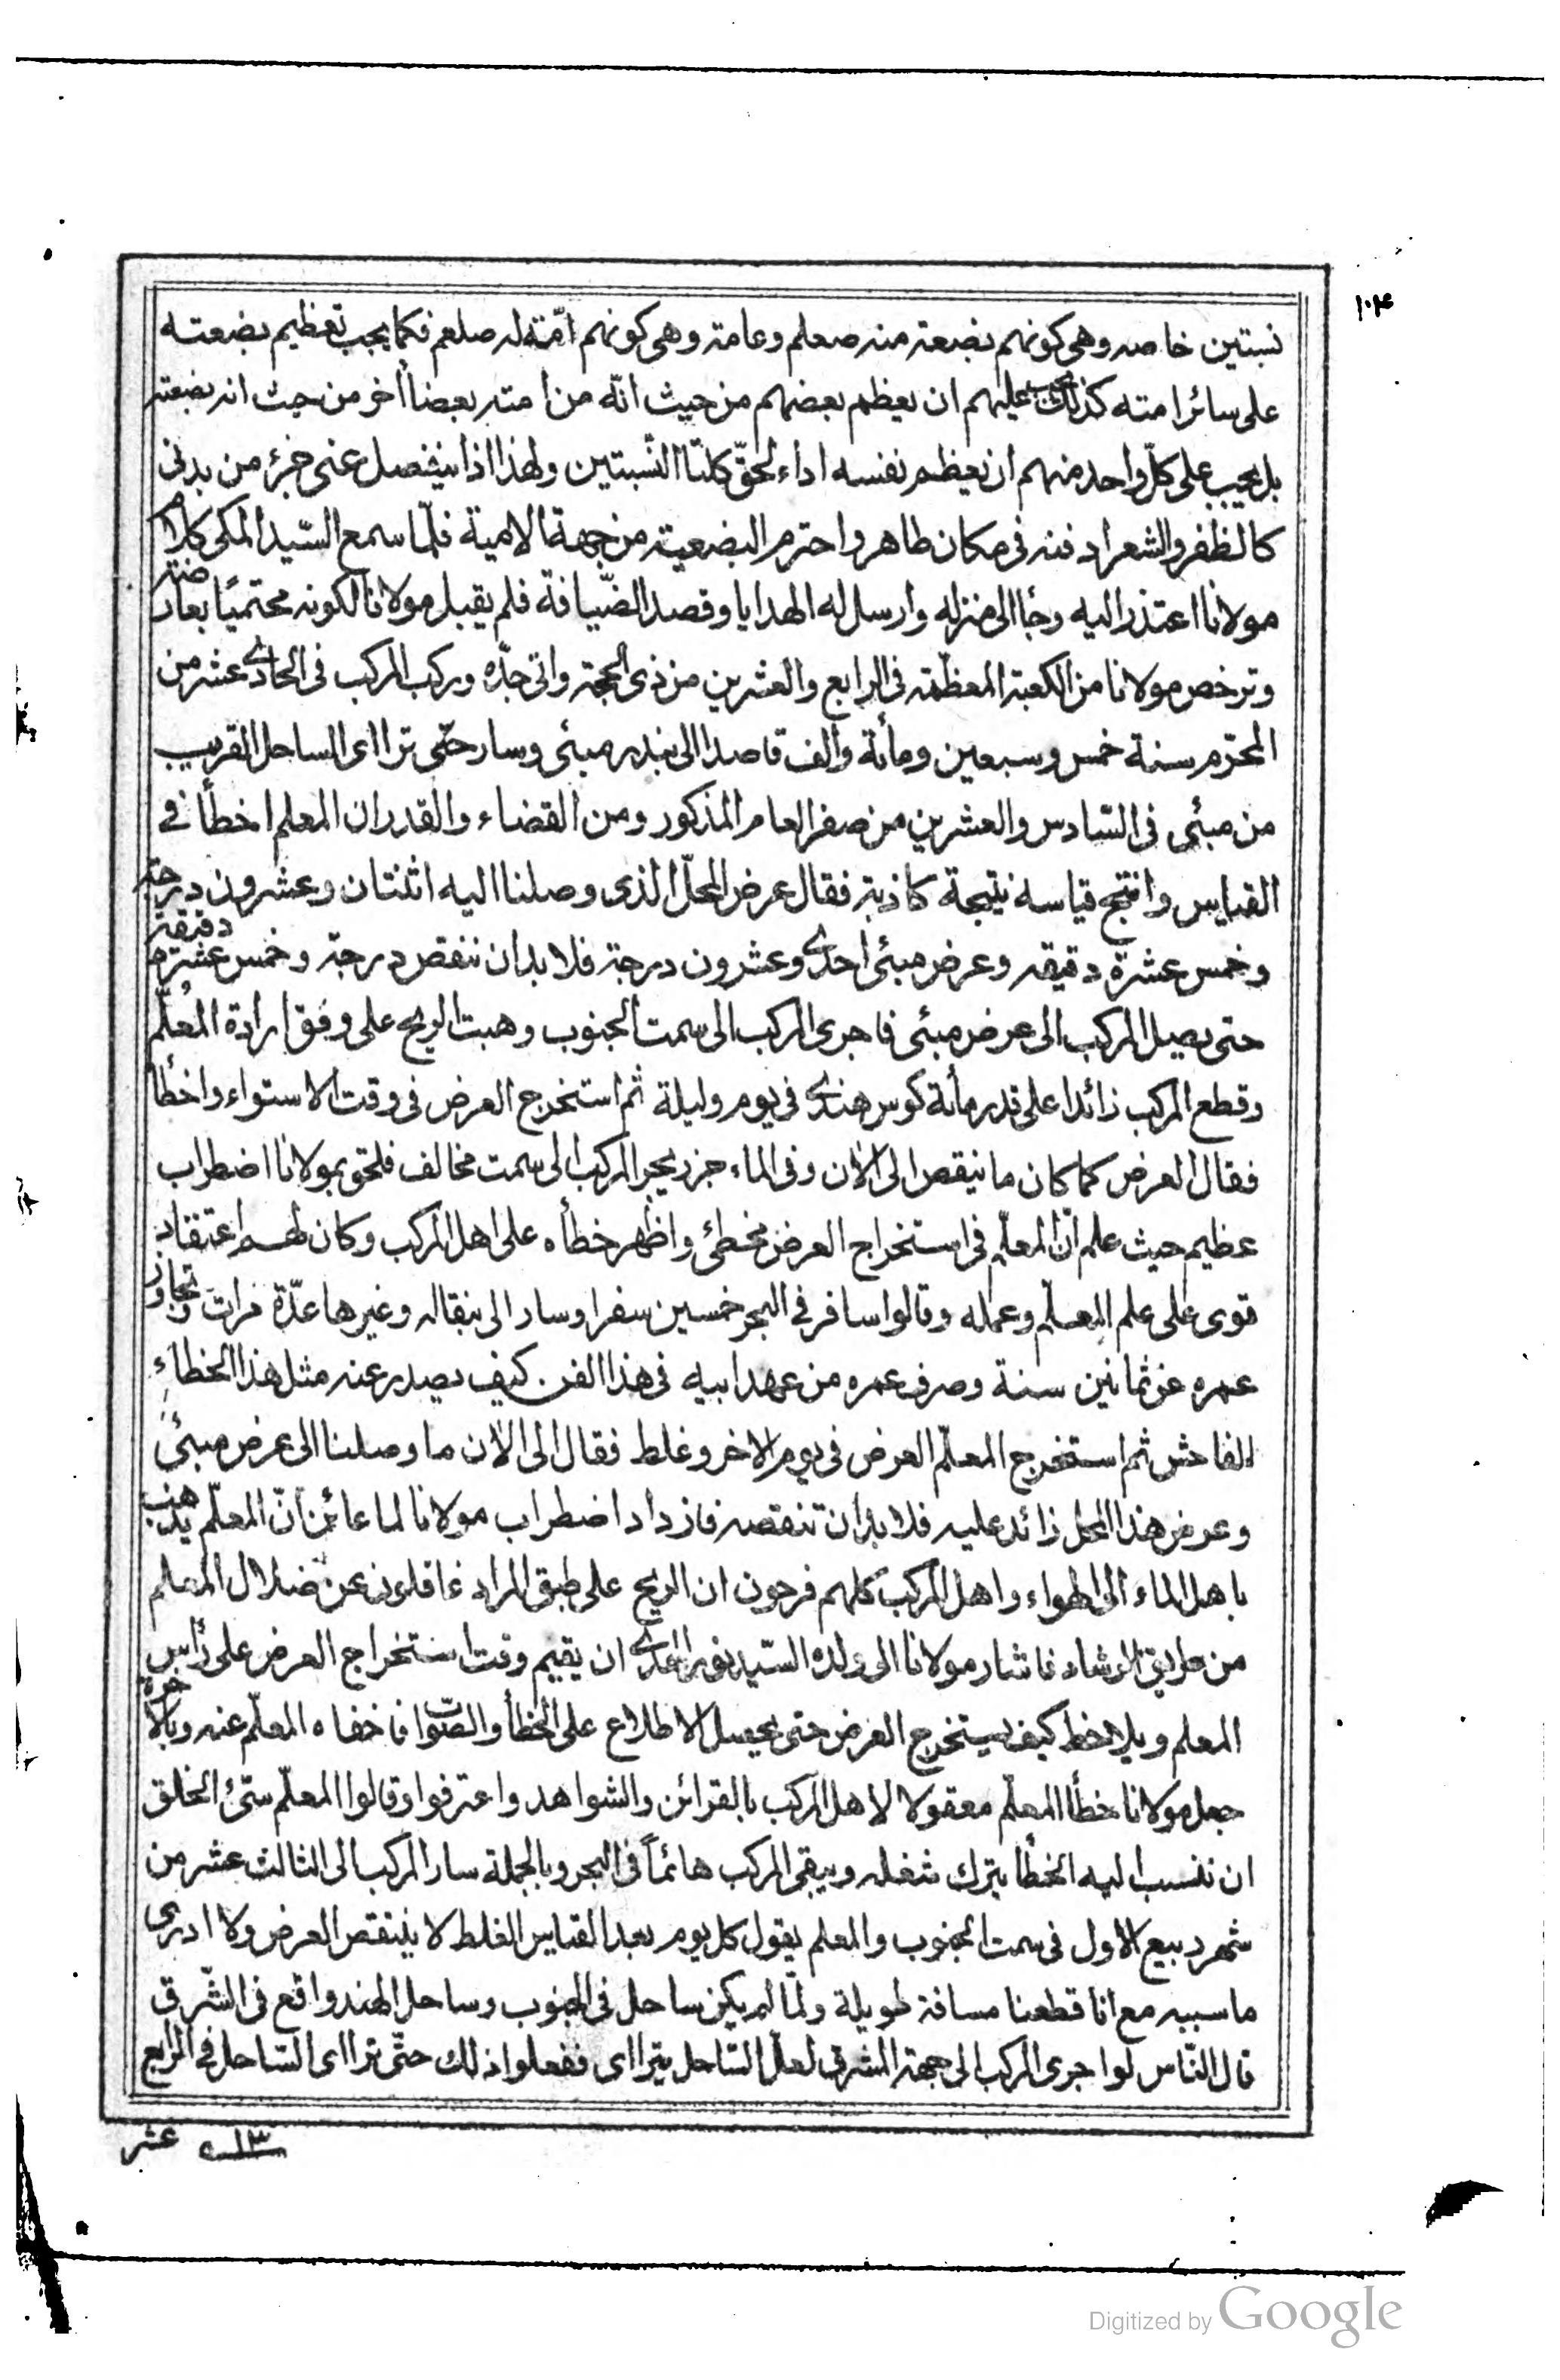 ١٠۴
نسبتين خاصه وهى كونهم بضعته منه صعلم وعامة وهى كونهم امّته له صلعم فكما يجب تعظيم بضعته
على سائر امته كذلك يجب عليهم ان يعظم بعضهم من حيث انّه من امته بعضاً اخر من حيث انه بضعته
بل يجب على كلّ واحد منهم ان يعظم نفسه اداء لحقّ كلتا النّسبتين ولهذا اذا ينفصل عنى جزء من بدنى
كالظفر والشعر ادفنه فى مكان طاهر واحترم البضعيته من جهة الامية فلمّا سمع السّيد المكى كلام
مولانا اعتذر اليه وجاً الى منزله وارسل له الهدايا وقصد الضّيافة فلم يقبل مولانا لكونه محتميًا بعارضة
وترخص مولانا من الكعبة المعظمّة فى الرابع والعشرين من ذى الحجة واتى جدّه وركب المركب فى الحادى عشر من
المحرّم سنة خمس وسبعين ومأئة والف قاصدا الى بندر مبئى وسار حتّى تراأى الساحل القريب
من مبئى فى السّادس والعشرين من صفر العام المذكور ومن القضاء والقدر ان المعلم اخطأ فى
القياس وانتج قياسه نتيجة كاذبة فقال عرض المحلّ الذى وصلنا اليه اثنتان وعشرون درجة
وخمس عشرة دقيقه وعرض مبئى احدى وعشرون درجة فلا بد ان ننقص درجة وخمس عشرة دقيقة
حتى يصل المركب الى عرض مبئى فاجرى المركب الى سمت الجنوب وهبت الريح على وفق ارادة المعلّم
وقطع المركب زائدا على قدر مأئة كوس هندى فى يوم وليلة ثم استخرج العرض فى وقت الاستواء واخطأ
فقال العرض كما كان ما نيقص الى الان وفى الماء جزر يجر المركب الى سمت مخالف فلحق بمولانا اضطراب
عظيم حيث علم انّ المعلّم فى استخراج العرض مخطئ واظهر خطأه على اهل المركب وكان لهم اعتقاد
قوى على علم المعلّم وعمله وقالوا سافر فى البحر خمسين سفرا وسار الى بنقاله وغيرها عدّة مرات وتجاوز
عمره عن ثمانين سنة وصرف عمره من عهد ابيه فى هذا الفن كيف يصدر عنه مثل هذا الخطاء
الفاحش ثم استخرج المعلّم العرض فى يوم الاخر وغلط فقال الى الان ما وصلنا الى عرض مبئى
وعرض هذا المحل زائد عليه فلا بد ان تنقصه فازداد اضطراب مولانا لما عاين انّ المعلّم يذهب
باهل الماء الى الهواء واهل المركب كلهم فرحون ان الريح على طبق المراد غافلون عن ضلال المعلم
من طريق الرشاد فاشار مولانا الى ولده السّيد نور الهدى ان يقيم وقت استخراج العرض على رأس
المعلم ويلاحظ كيف يستخرج العرض حتى يحصل الاطلاع على الخطأ والصّواب فاخفاه المعلّم عنه وبالاخرة
جعل مولانا خطأ المعلّم معقولا لاهل المركب بالقرائن والشواهد واعترفوا وقالوا المعلّم سئ الخلق
ان ننسب اليه الخطأ يترك شغله ويبقى المركب هائماً فى البحر وبالجملة سار المركب الى الثالث عشر من
شهر ربيع الاول فى سمت الجنوب والمعلم يقول كل يوم بعد القياس الغلط لا ينتقص العرض ولا ادرى
ما سببه مع انا قطعنا مسافة طويلة ولمّا لم يكن ساحل فى الجنوب وساحل الهند واقع فى الشّرق
قال النّاس لو اجرى المركب الى جهة المشرق لعلّ السّاحل يتراأى ففعلوا ذلك حتّى تراأى السّاحل فى الرابع
عشر